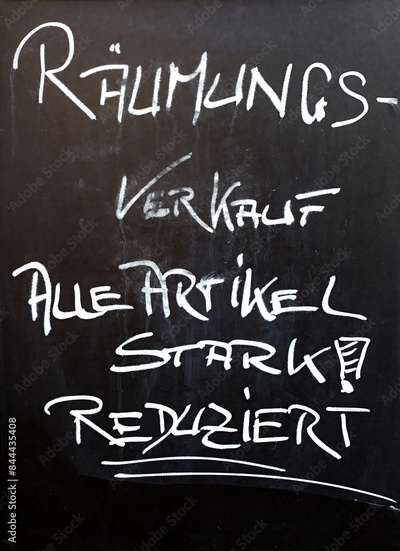 RÄUMUNGS-
VERKAUF
ALLE ARTIKEL
STARK!
REDUZIERT
Adobe Stock | #844435408